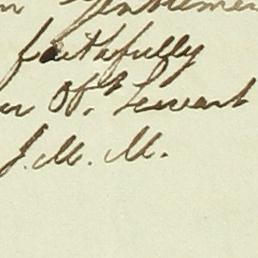 Gentlemen
faithfully
Obt. Servant
J. M. M.